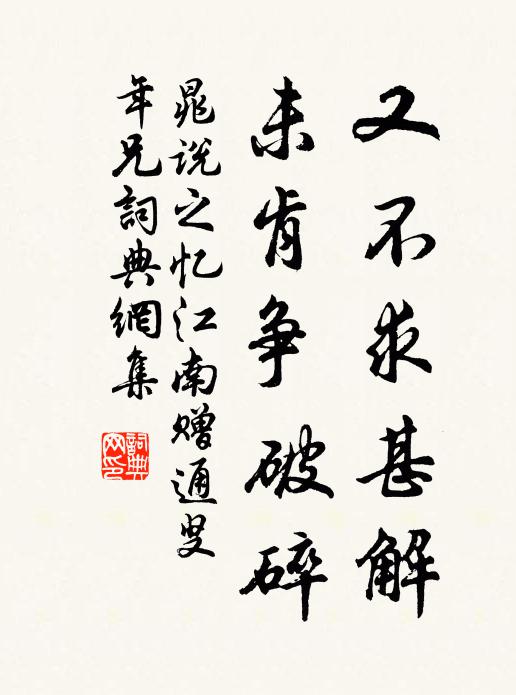 又不求甚解
未肯争破碎
晁说之忆江南赠通叟
年兄詞典網集
詞典网印